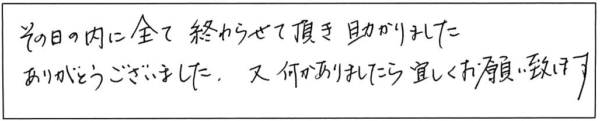 その日の内に全て終わらせて頂き助かりました
ありがとうございました. 又何かありましたら宜しくお願い致します